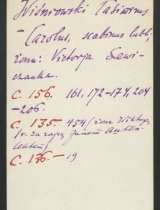 Wiśniowski Casimirus
- Carolus, scabinus lubl.
żona: Victorja Lewi-
czanka.
C. 156. 161, 172-174, 204
-206.
C. 135. - 454 (żona Wiktorja,
C. 136. - 19